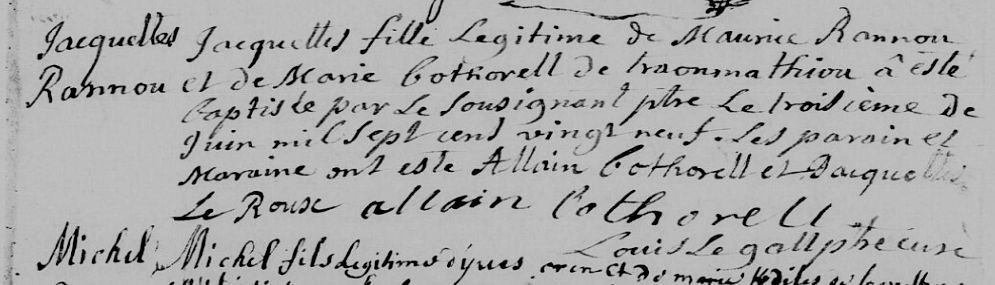 Jacquettes Jacquettes fille Legitime de Maurice Rannou
Rannou et de Marie Cothorell de traonmathiou â esté
baptisée par Le Sousignant ptre Le troisième de
Juin mil Sept cens vingt neuf. Les parain et
Maraine ont este Allain Cothorell et Jacquettes
Le Roux allain Cothorell
Louis Le gall ptre curé
Michel Michel fils Legitime d'yves et de marie